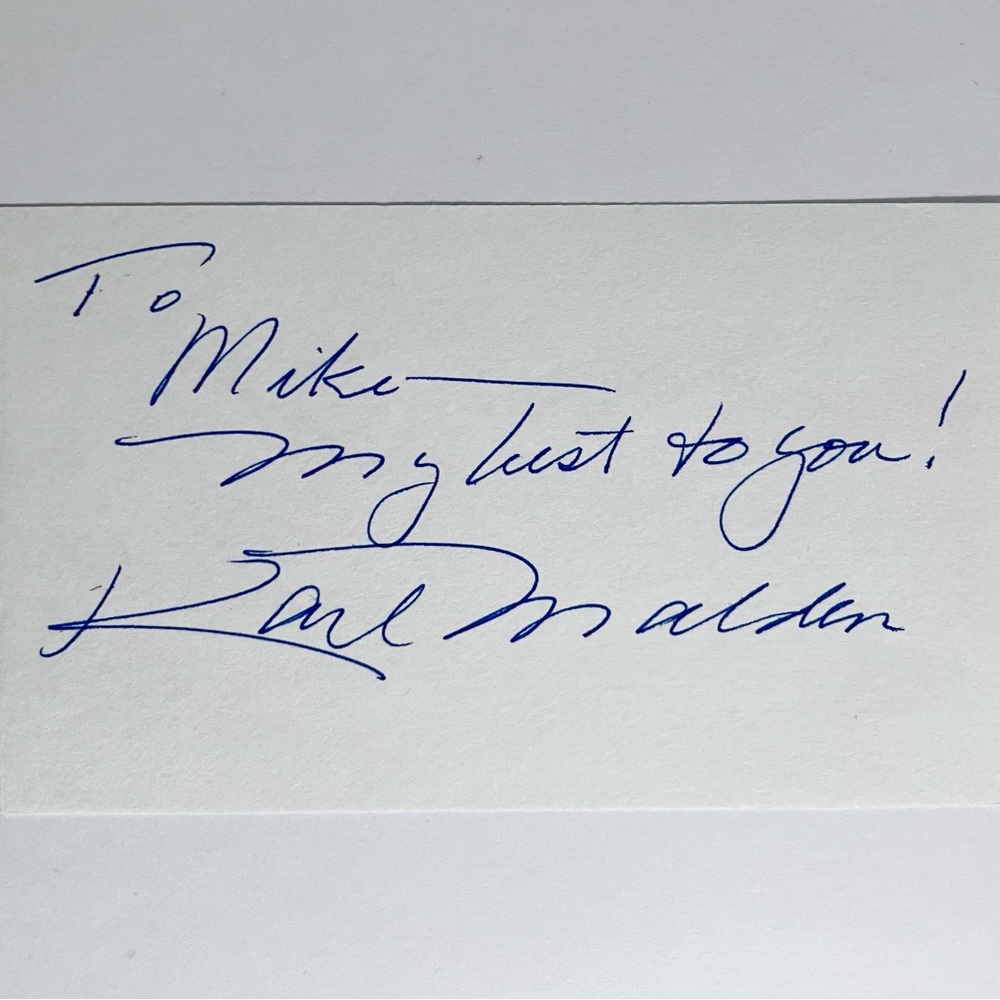 To
Mike
My best to you!
Karl Malden